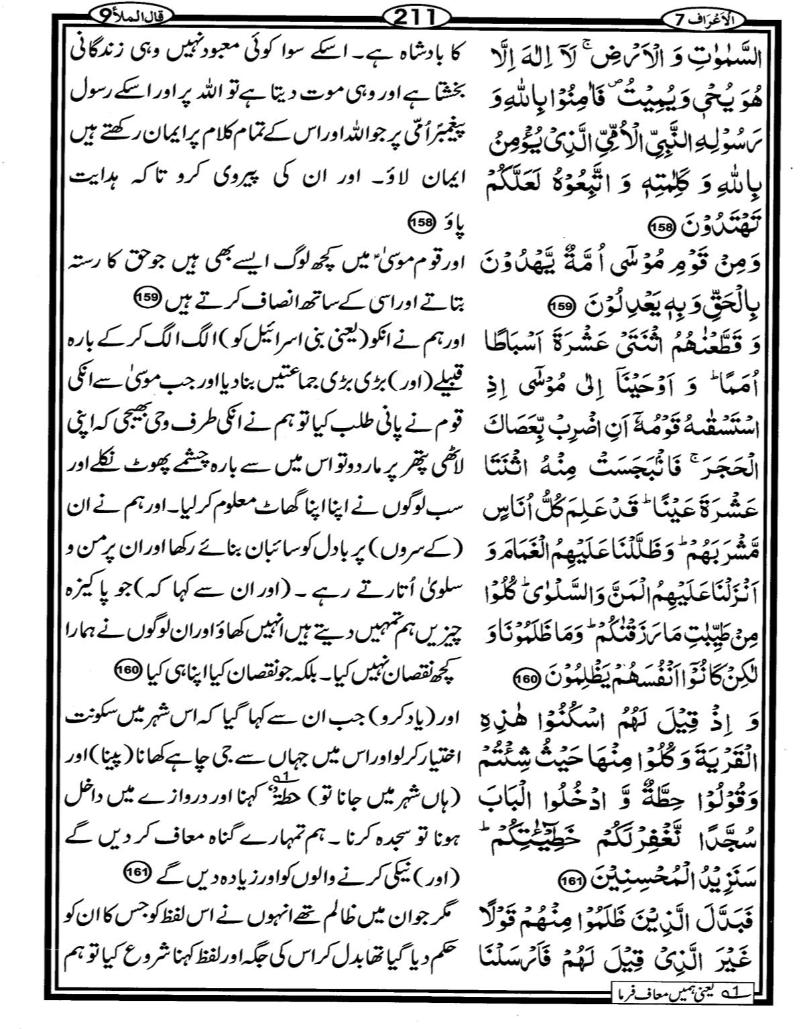 الاعراف 7
211
قال الملأ 9
السَّمٰوٰتِ وَ الْاَرْضِ ۚ لَاۤ اِلٰهَ اِلَّا
هُوَ یُحْیٖ وَ یُمِیْتُ ۪ فَاٰمِنُوْا بِاللّٰهِ وَ
رَسُوْلِهِ النَّبِیِّ الْاُمِّیِّ الَّذِیْ یُؤْمِنُ
بِاللّٰهِ وَ كَلِمٰتِهٖ وَ اتَّبِعُوْهُ لَعَلَّكُمْ
تَهْتَدُوْنَ 158
وَمِنْ قَوْمِ مُوْسٰۤی اُمَّةٌ یَّهْدُوْنَ
بِالْحَقِّ وَبِهٖ یَعْدِلُوْنَ 159
وَ قَطَّعْنٰهُمُ اثْنَتَیْ عَشْرَةَ اَسْبَاطًا
اُمَمًا ؕ وَ اَوْحَیْنَاۤ اِلٰی مُوْسٰۤی اِذِ
اسْتَسْقٰىهُ قَوْمُهٗۤ اَنِ اضْرِبْ بِّعَصَاكَ
الْحَجَرَ ۚ فَانْۢبَجَسَتْ مِنْهُ اثْنَتَا
عَشْرَةَ عَیْنًا ؕ قَدْ عَلِمَ كُلُّ اُنَاسٍ
مَّشْرَبَهُمْ ؕ وَظَلَّلْنَا عَلَیْهِمُ الْغَمَامَ وَ
اَنْزَلْنَا عَلَیْهِمُ الْمَنَّ وَالسَّلْوٰی ؕ كُلُوْا
مِنْ طَیِّبٰتِ مَا رَزَقْنٰكُمْ ؕ وَمَا ظَلَمُوْنَا وَ
لٰكِنْ كَانُوْۤا اَنْفُسَهُمْ یَظْلِمُوْنَ 160
وَ اِذْ قِیْلَ لَهُمُ اسْكُنُوْا هٰذِهِ
الْقَرْیَةَ وَ كُلُوْا مِنْهَا حَیْثُ شِئْتُمْ
وَقُوْلُوْا حِطَّةٌ وَّ ادْخُلُوا الْبَابَ
سُجَّدًا نَّغْفِرْ لَكُمْ خَطِیْٓـٰٔتِكُمْ ؕ
سَنَزِیْدُ الْمُحْسِنِیْنَ 161
فَبَدَّلَ الَّذِیْنَ ظَلَمُوْا مِنْهُمْ قَوْلًا
غَیْرَ الَّذِیْ قِیْلَ لَهُمْ فَاَرْسَلْنَا
کا بادشاہ ہے۔ اسکے سوا کوئی معبود نہیں وہی زندگانی
بخشتا ہے اور وہی موت دیتا ہے تو اللہ پر اور اسکے رسول
پیغمبرِ اُمّی پر جو اللہ اور اس کے تمام کلام پر ایمان رکھتے ہیں
ایمان لاؤ۔ اور ان کی پیروی کرو تاکہ ہدایت
پاؤ 158
اور قوم موسیٰؑ میں کچھ لوگ ایسے بھی ہیں جو حق کا رستہ
بتاتے اور اسی کے ساتھ انصاف کرتے ہیں 159
اور ہم نے انکو (یعنی بنی اسرائیل کو) الگ الگ کر کے بارہ
قبیلے (اور) بڑی بڑی جماعتیں بنا دیا اور جب موسیٰ سے انکی
قوم نے پانی طلب کیا تو ہم نے انکی طرف وحی بھیجی کہ اپنی
لاٹھی پتھر پر مار دو تو اس میں سے بارہ چشمے پھوٹ نکلے اور
سب لوگوں نے اپنا اپنا گھاٹ معلوم کر لیا۔ اور ہم نے ان
(کے سروں) پر بادل کو سائبان بنائے رکھا اور ان پر من و
سلویٰ اُتارتے رہے ۔ (اور ان سے کہا کہ) جو پاکیزہ
چیزیں ہم تمہیں دیتے ہیں انہیں کھاؤ اور ان لوگوں نے ہمارا
کچھ نقصان نہیں کیا۔ بلکہ جو نقصان کیا اپنا ہی کیا 160
اور (یاد کرو) جب ان سے کہا گیا کہ اس شہر میں سکونت
اختیار کر لو اور اس میں جہاں سے جی چاہے کھانا (پینا) اور
(ہاں شہر میں جانا تو) حِطَّةٌ 1 کہنا اور دروازے میں داخل
ہونا تو سجدہ کرنا ۔ ہم تمہارے گناہ معاف کر دیں گے
(اور) نیکی کرنے والوں کو اور زیادہ دیں گے 161
مگر جو ان میں ظالم تھے انہوں نے اس لفظ کو جس کا ان کو
حکم دیا گیا تھا بدل کر اس کی جگہ اور لفظ کہنا شروع کیا تو ہم
1 یعنی ہمیں معاف فرما